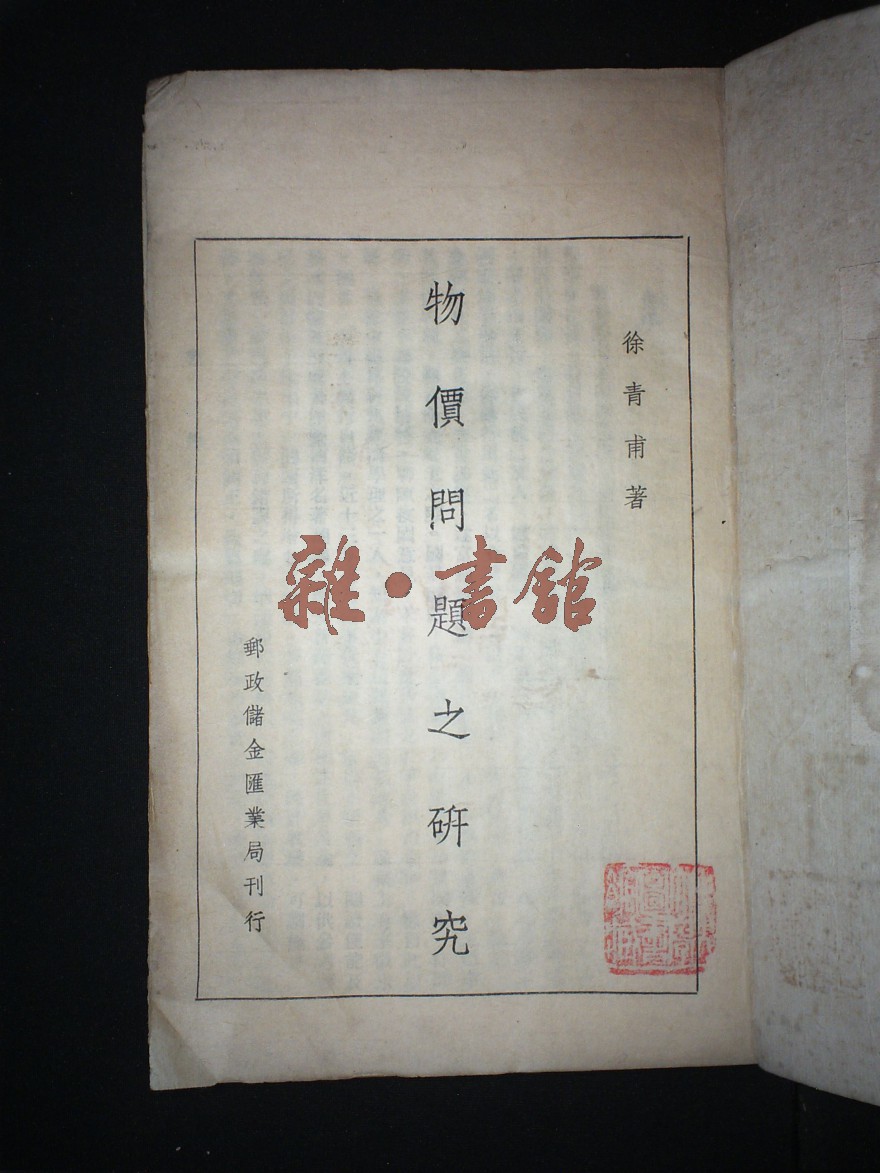 徐青甫著
物價問題之研究
郵政儲金匯業局刊行
雜·書館